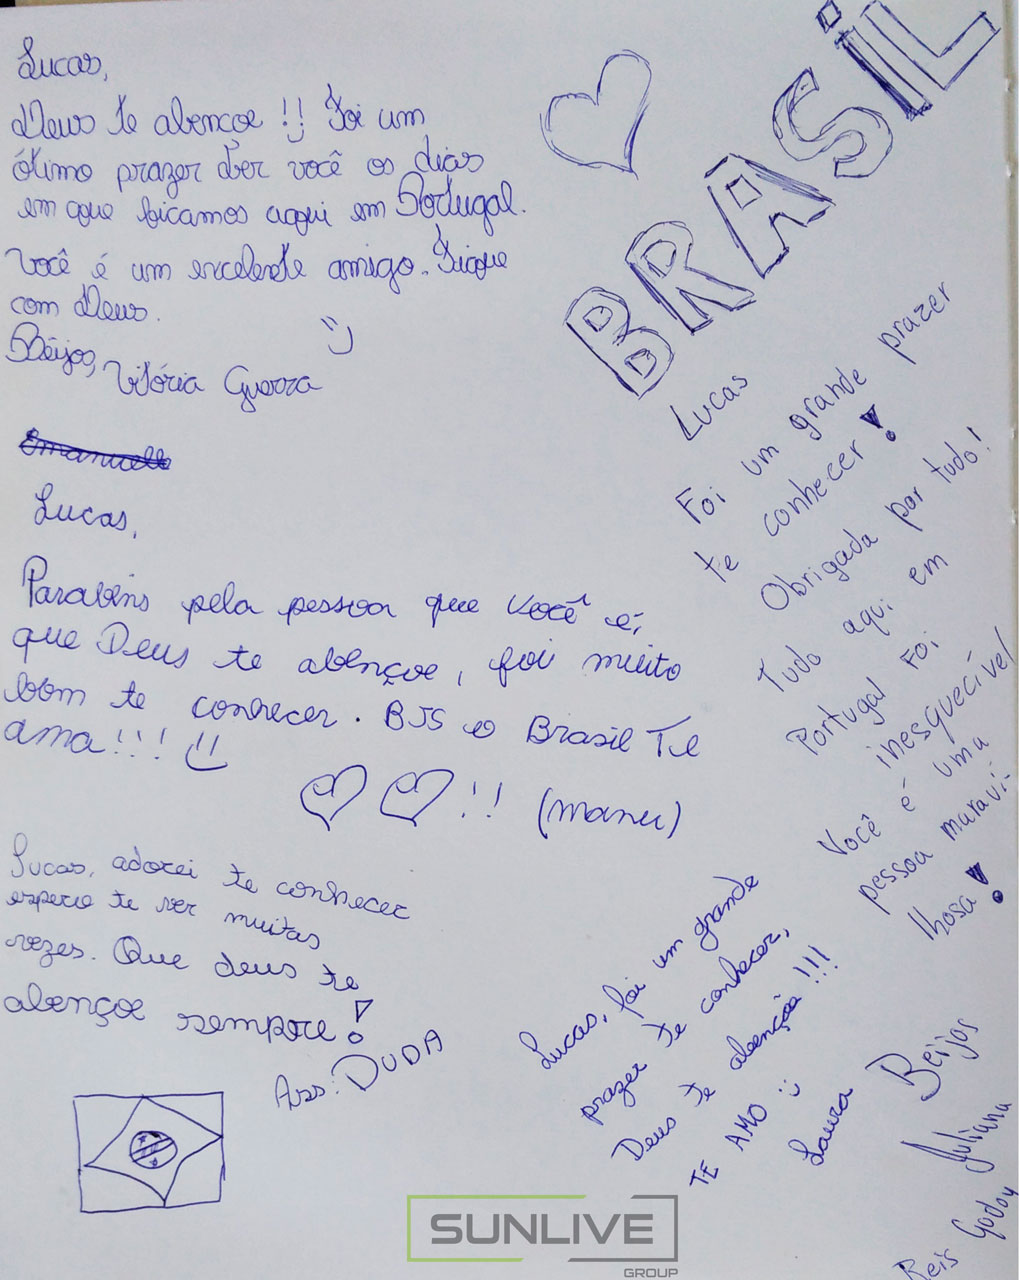 Lucas,
Deus te abençoe !! Foi um
ótimo prazer ter você os dias
em que ficamos aqui em Portugal.
Você é um excelente amigo. Fique
com Deus.
Beijos, Vitória Guerra
Emanuelle
Lucas,
Parabéns pela pessoa que você é,
que Deus te abençoe, foi muito
bom te conhecer. BJS o Brasil Te
ama!!!
!! (manu)
Lucas, adorei te conhecer
espero te ver muitas
vezes. Que deus te
abençoe sempre!
Ass: DUDA
BRASIL
Lucas
Foi um grande prazer
te conhecer!
Obrigada por tudo!
Tudo aqui em
Portugal foi
inesquecível
Você é uma
pessoa maravi-
lhosa!
Beijos
Juliana
Reis Godoy
Lucas, foi um grande
prazer te conhecer,
Deus te abenção!!!
TE AMO
Laura
SUNLIVE
GROUP